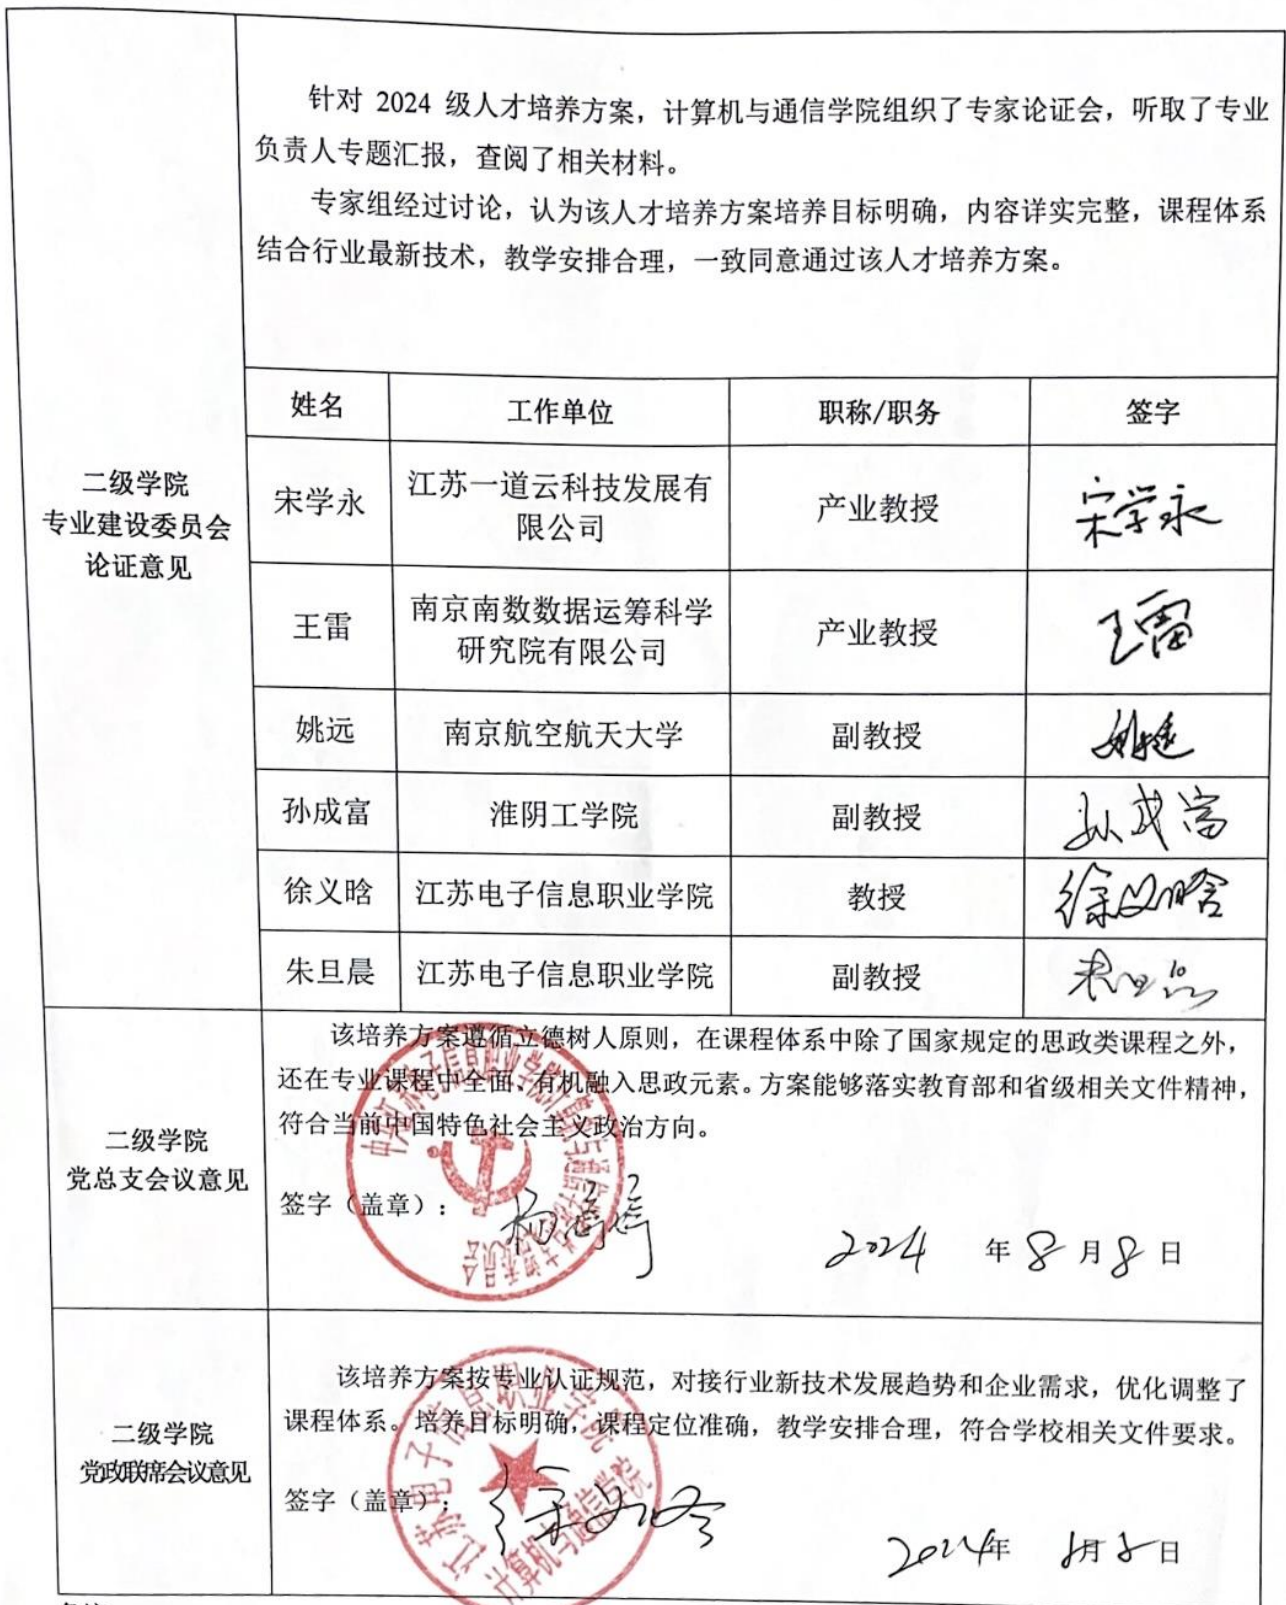 针对 2024 级人才培养方案，计算机与通信学院组织了专家论证会，听取了专业
负责人专题汇报，查阅了相关材料。
专家组经过讨论，认为该人才培养方案培养目标明确，内容详实完整，课程体系
结合行业最新技术，教学安排合理，一致同意通过该人才培养方案。
二级学院
专业建设委员会
论证意见
姓名 工作单位 职称/职务 签字
宋学永 江苏一道云科技发展有
限公司 产业教授 宋学永
王雷 南京南数数据运筹科学
研究院有限公司 产业教授 王雷
姚远 南京航空航天大学 副教授 姚远
孙成富 淮阴工学院 副教授 孙成富
徐义晗 江苏电子信息职业学院 教授 徐义晗
朱旦晨 江苏电子信息职业学院 副教授 朱旦晨
二级学院
党总支会议意见
该培养方案遵循立德树人原则，在课程体系中除了国家规定的思政类课程之外，
还在专业课程中全面、有机融入思政元素。方案能够落实教育部和省级相关文件精神，
符合当前中国特色社会主义政治方向。
签字（盖章）：
2024 年 8 月 8 日
二级学院
党政联席会议意见
该培养方案按专业认证规范，对接行业新技术发展趋势和企业需求，优化调整了
课程体系。培养目标明确，课程定位准确，教学安排合理，符合学校相关文件要求。
江苏电子信息职业学院
计算机与通信学院
签字（盖章）： 徐义晗
2024年 8月 8 日